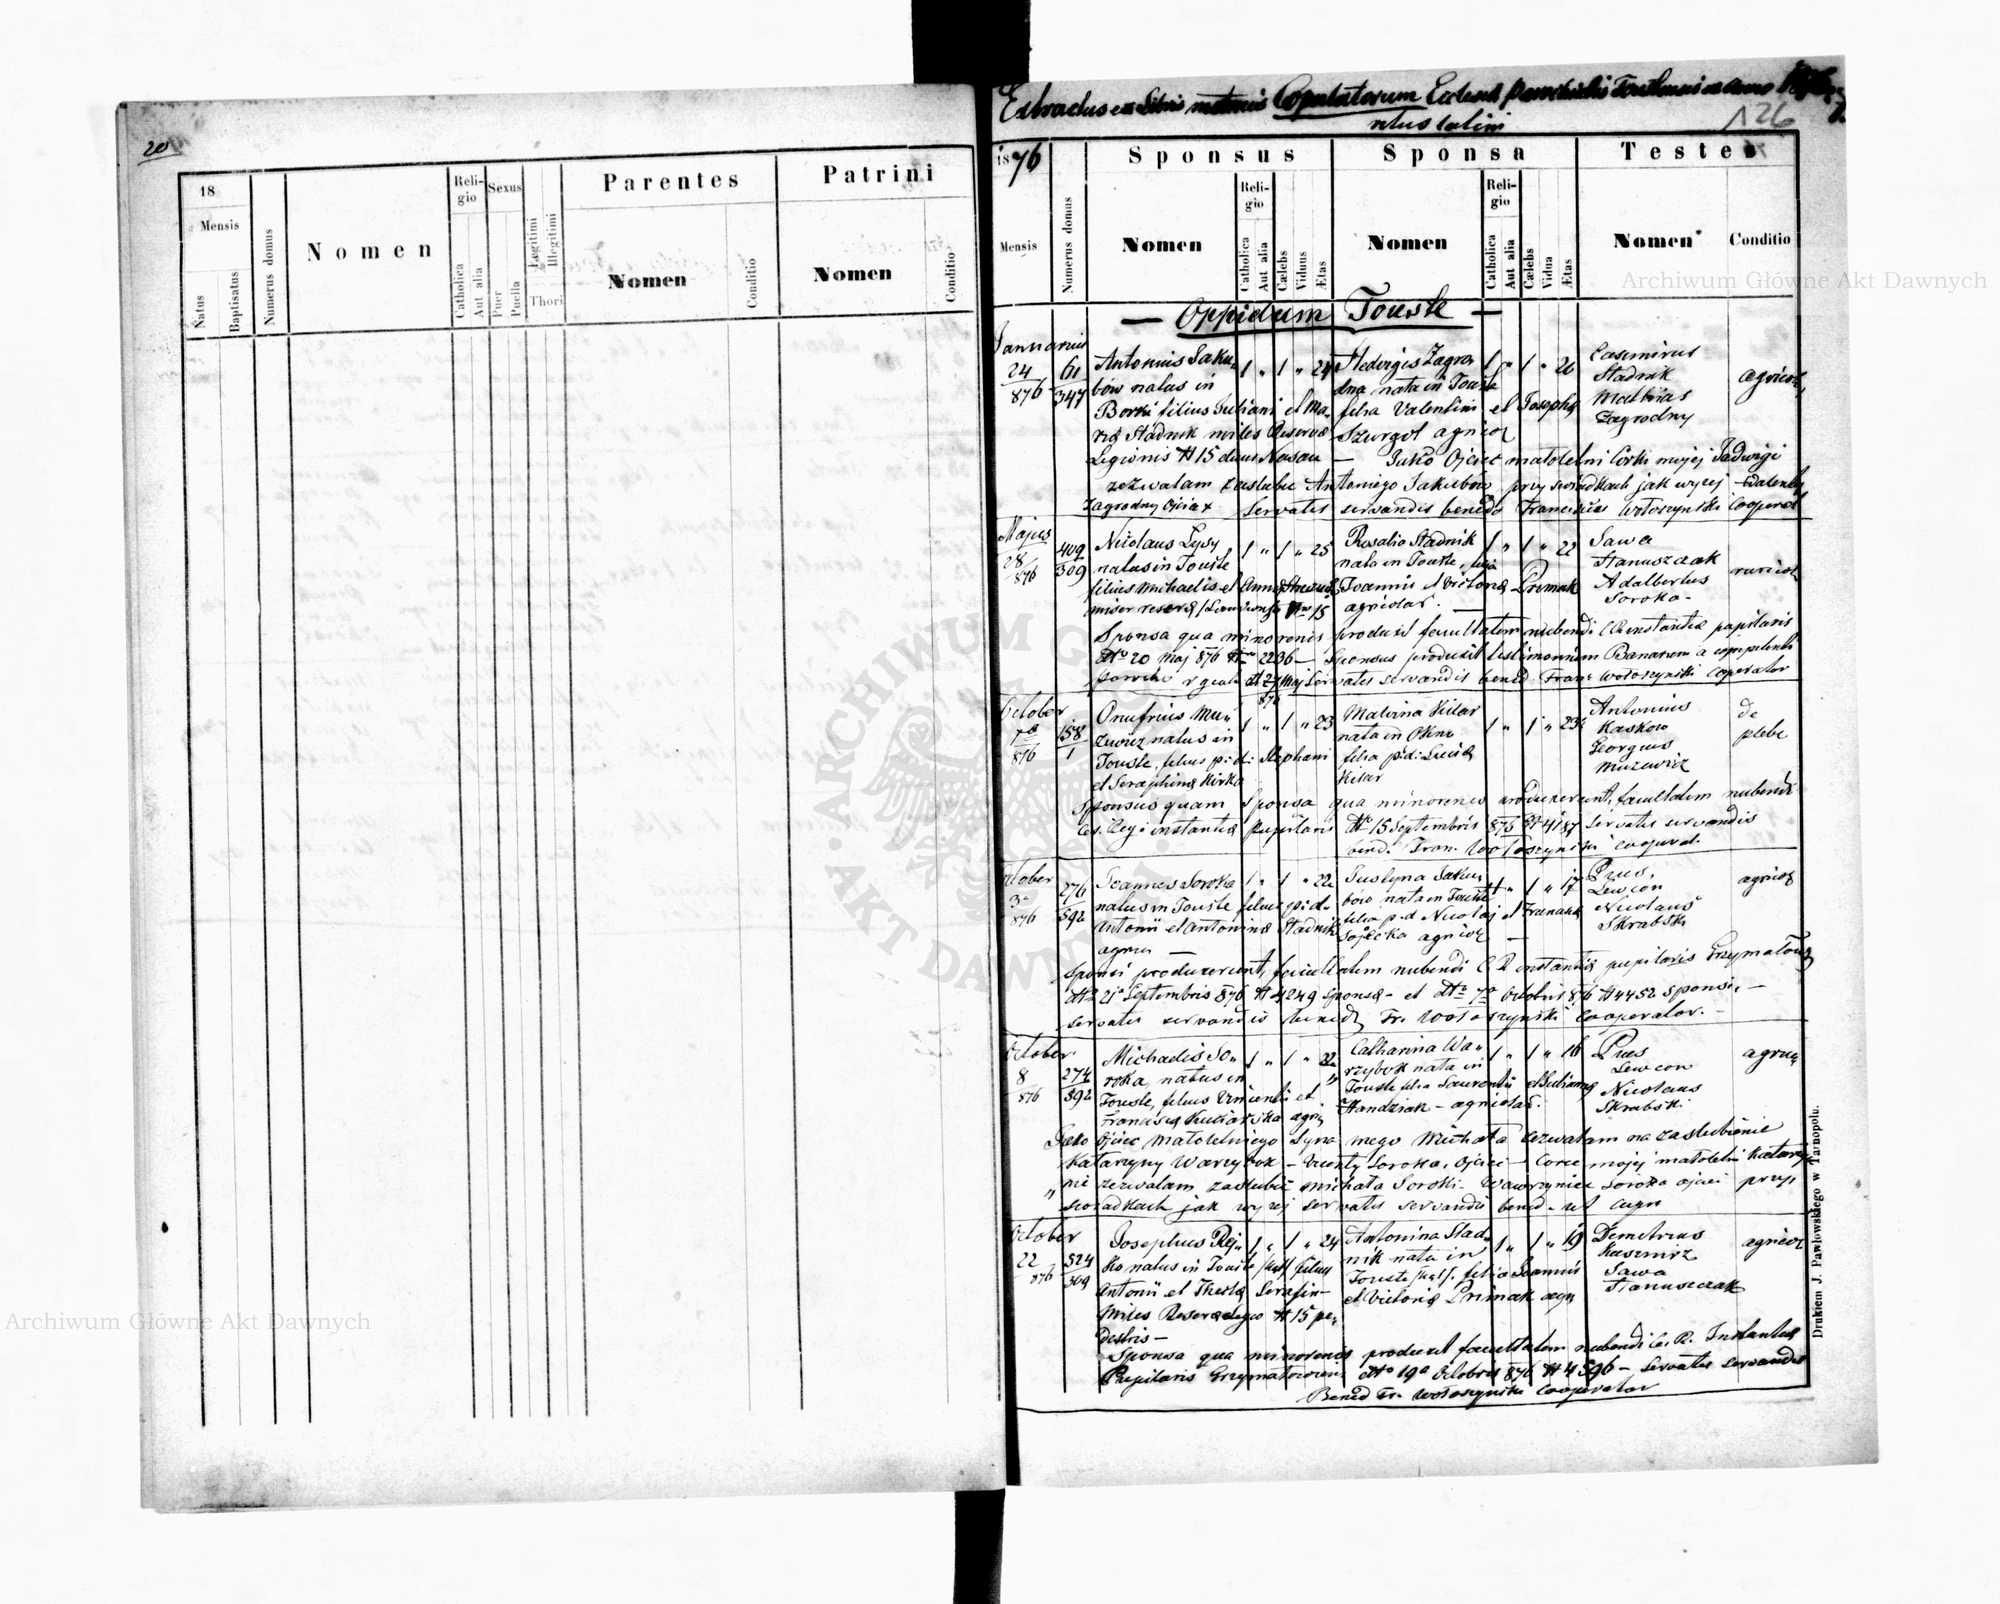 20
18
Mensis
Natus
Baptisatus
Numerus domus
Nomen
Religio
Catholica
Aut alia
Sexus
Puer
Puella
Legitimi
Illegitimi
Thori
Parentes
Nomen
Conditio
Patrini
Nomen
Conditio
Extractus ex Libris Copulatorum
ritus latini
126
1876
Sponsus
Sponsa
Testes
Mensis
Numerus domus
Nomen
Religio
Catholica
Aut alia
Cælebs
Viduus
Ætas
Nomen
Religio
Catholica
Aut alia
Cælebs
Vidua
Ætas
Nomen
Conditio
— Oppidum Touste —
Januarius
24
876
61
347
Antonius Jaku
bów natus in
Borki filius Juliani et Ma
riæ Stadnik miles Reservæ
Legionis N 15 ducis Nasau —
1 " 1 " 24
Hedvigis Zagro
dna nata in Touste
filia Valentini et Josephæ
Szurgot agricol
1 " 1 " 20
Casimirus
Stadnik
Mathias
Zagrodny
agricol
Jako Ojciec małoletni Córki mojej Jadwigi
zezwalam zaslubić Antoniego Jakubów przy swiadkach jak wyzej Walenty
Zagrodny Ojciec Servatis servandis bened Franciscus Wołoszynski Cooperat
Majus
28
876
409
309
Nicolaus Łysy
natus in Touste
filius Michaelis et Annæ
1 " 1 " 25
Rosalia Stadnik
nata in Touste, filia
Joannis et Victoriæ Primak
agricolar.
1 " 1 " 22
Sawa
Stanuszczak
Adalbertus
Soroka
ruricol
Sponsa qua minorenis produxit facultatem nubendi C R instantiæ pupilaris
dto 20 Maj 876 N 2236 — Sponsus produxit testimonium Banorum a competenti
27 Maj 876 Servatis servandis bened Franc Wołoszynski Cooperator
October
876
158
1
Onufrius Mu
zewicz natus in
Touste, filius p: d: Stephani
et Seraphinæ Kirka
1 " 1 " 23
Malvina Kitar
nata in Okno
filia p: d: Luciæ
Kitar
1 " 1 " 23
Antonius
Kaskow
Georgius
Muzewicz
de
plebe
Sponsus quam Sponsa qua minorenes produxerunt facultatem nubendi
Ces. Reg: instantiæ pupilaris dto 15 Septembris 876 N 4187 servatis servandis
bened. Fran. Wołoszynski cooperat.
October
3
876
276
592
Joannes Soroka
natus in Touste filius p: d.
Antonii et Antoninæ Stadnik
agric —
1 " 1 " 22
Justyna Jaku
bów nata in Touste
filia p. d Nicolaj et
Sojecka agricol —
1 " 1 " 17
Prus,
Lewcon
Nicolaus
Skrabski
agricol
Sponsi produxerunt facultatem nubendi C. R instantiæ pupilaris
dto 21 Septembris 876 N 4249 sponsæ — et dto 7 Octobris 876 N 4452 Sponsi, —
servatis servandis bened Fr. Wołoszynski Cooperator. —
October
8
876
274
592
Michaelis So
roka, natus in
Touste, filius Vincentii et
1 " 1 " 22
Catharina Wa
rzybok nata in
Touste filia Laurentii et Julianæ
Handziak — agricolar.
1 " 1 " 16
Prus
Lewcon
Nicolaus
Skrabski
Jako Ojciec małoletniego Syna mego Michała zezwalam na zaslubienie
Katarzyny Warzybok — Soroka, Ojciec — Corce mojej małoletni Katarzy
nie zezwalam zaslubić Michała Soroki — Wawrzyniec Soroka ojciec przy
swiadkach jak wyzej servatis servandis bened — ut supra
October
22
876
524
369
Josephus Rej
ko natus in Touste filius
Antonii et Theclæ Serafin —
Miles Reservæ Legio N 15 pe
destris —
1 " 1 " 24
Antonina Stad
nik nata in
Touste filia Joannis
et Victoriæ Primak agr
1 " 1 " 19
Demetrius
Kusznirz
Sawa
Stanuszczak
agricol
Sponsa qua minorenis produxit facultatem nubendi Ces. R. Instantiæ
Pupilaris dto 19 Octobris 876 N 4596 — servatis servandis
Bened Fr. Wołoszynski Cooperator
Drukiem J. Pawłowskiego w Tarnopolu.
ARCHIWUM GŁÓWNE AKT DAWNYCH
Archiwum Główne Akt Dawnych
Archiwum Główne Akt Dawnych